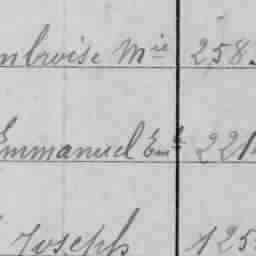 mbroise Mie 258
Emmanuel Em 221
Joseph 125